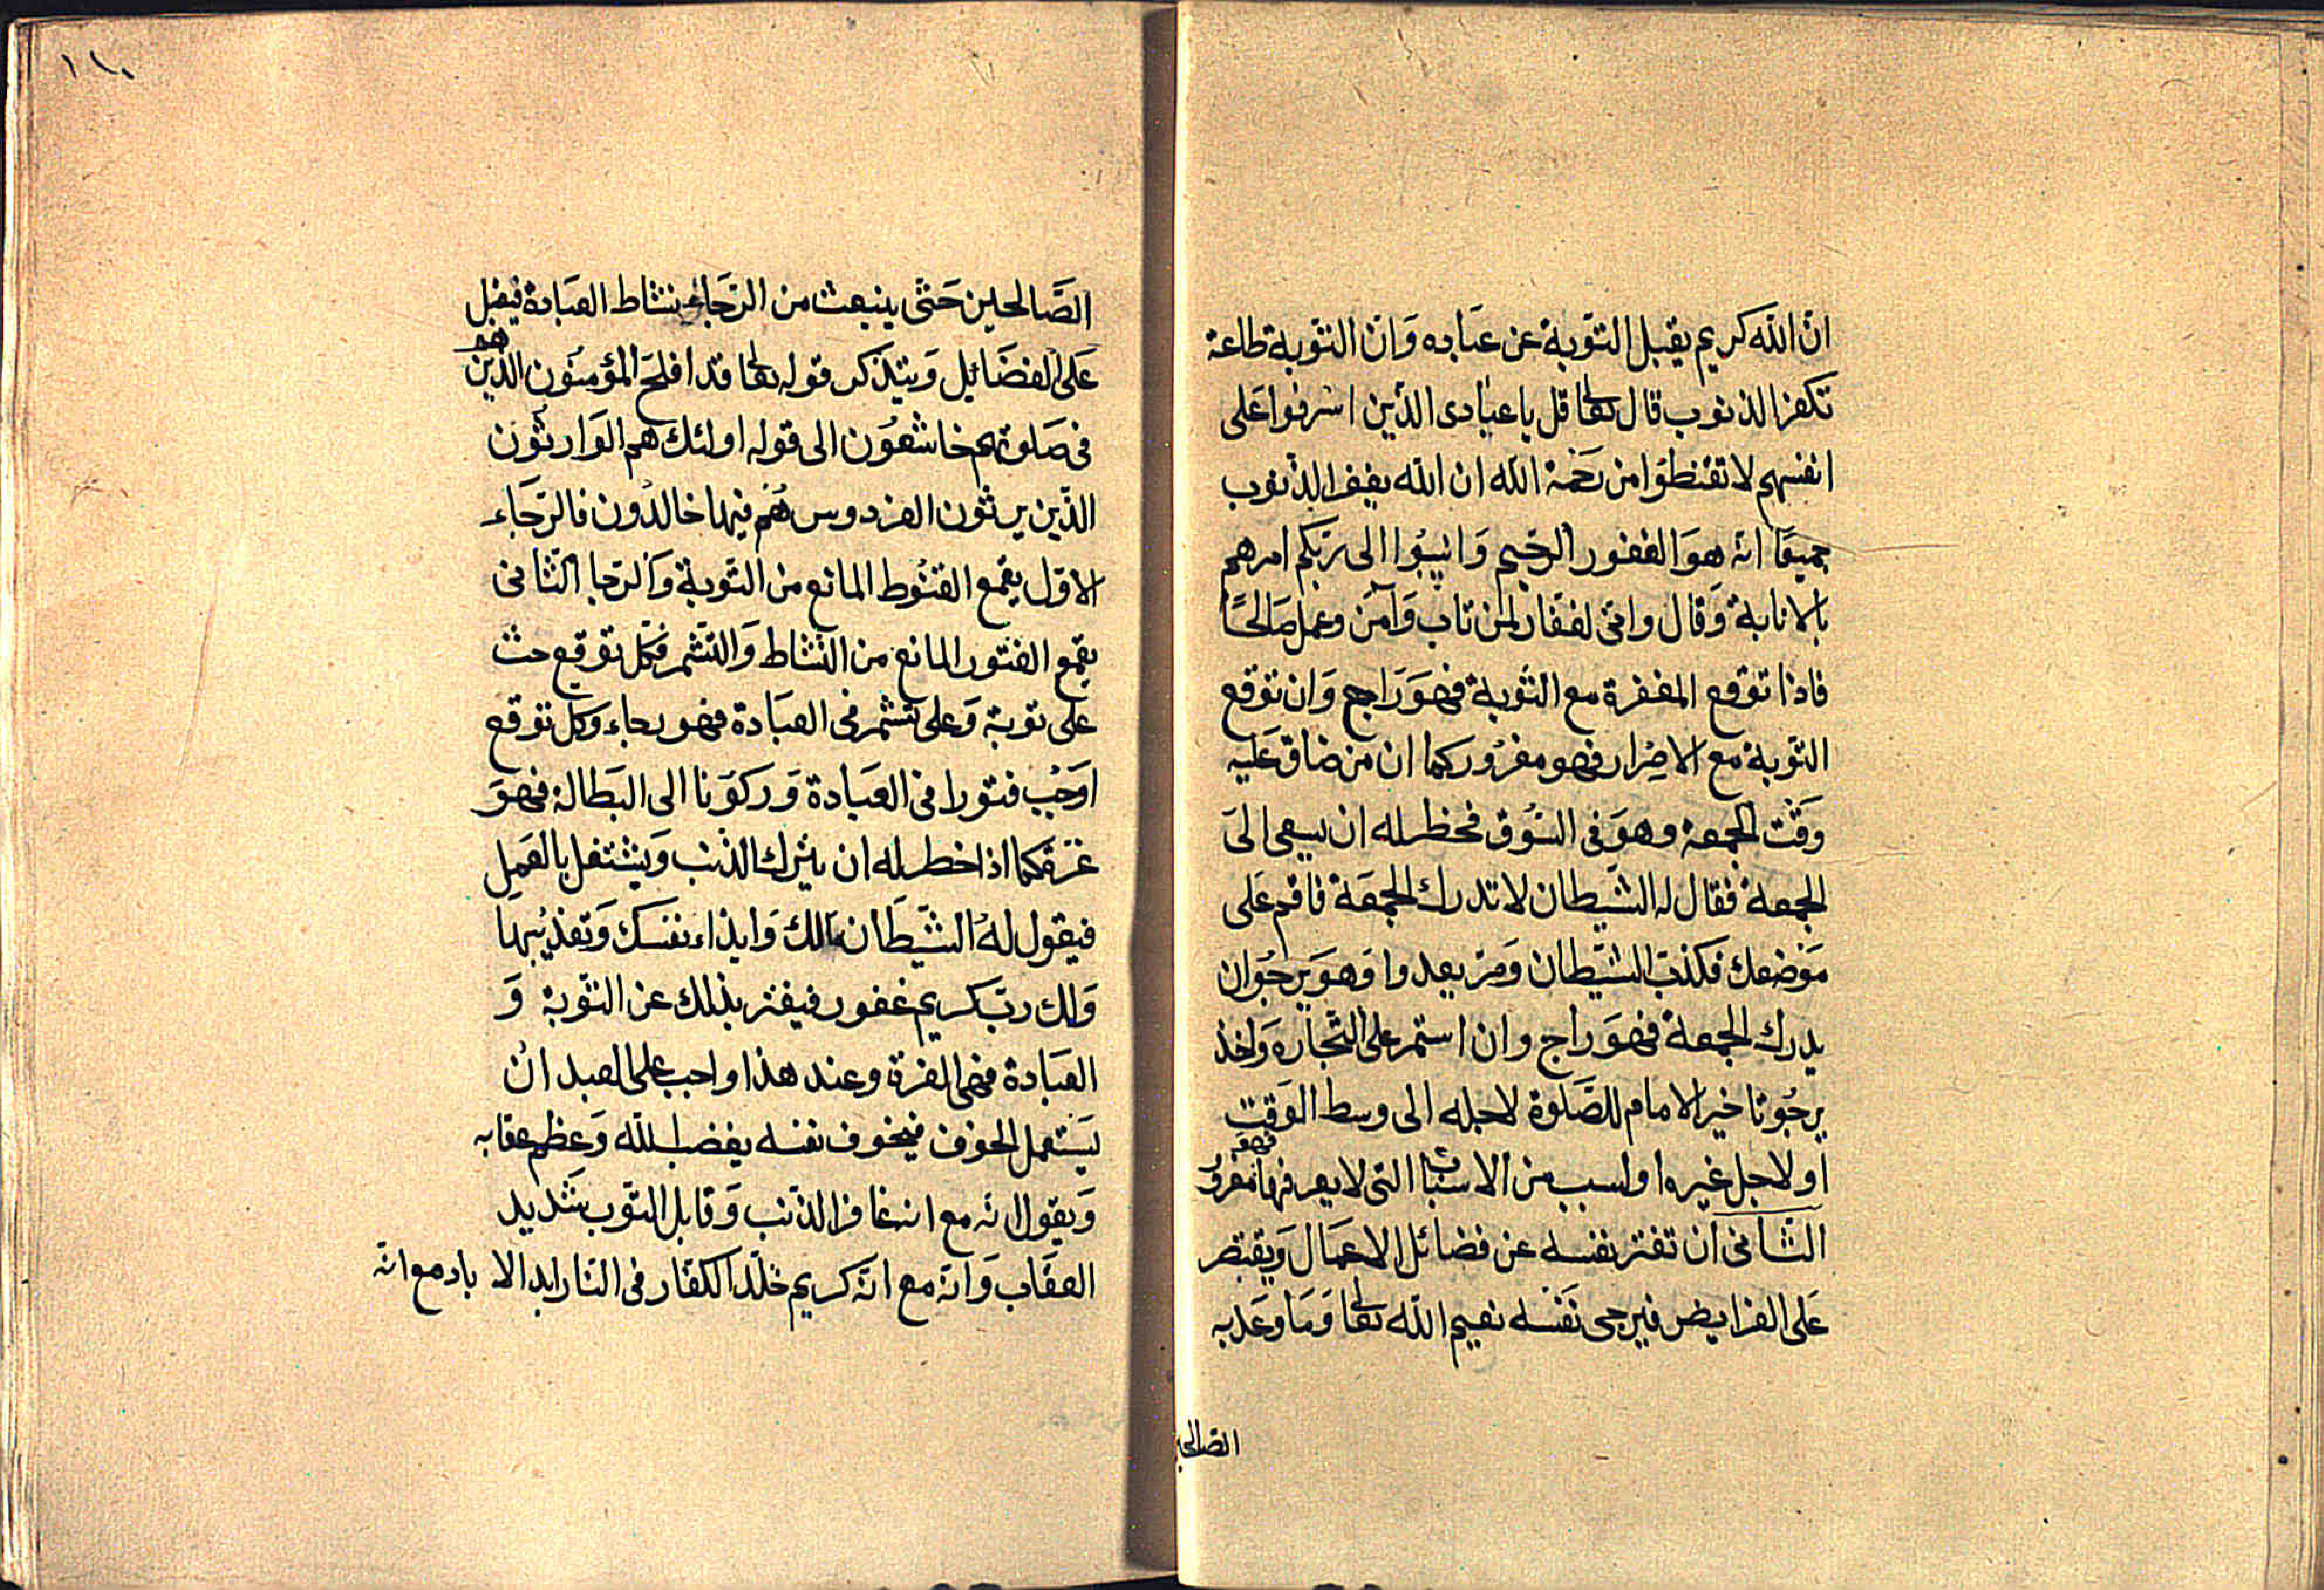 ان الله كريم يقبل التوبة عن عباده وان التوبة طاعة
تكفر الذنوب قال تعا قل يا عبادى الذين اسرفوا على
انفسهم لا تقنطوا من رحمة الله ان الله يغفر الذنوب
جميعا انه هو الغفور الرحيم وانيبوا الى ربكم امرهم
بالانابة وقال وانى لغفار لمن تاب وآمن وعمل صالحًا
فاذا توقع المغفرة مع التوبة فهو راجع وان توقع
التوبة مع الاصرار فهو مغرور كما ان من ضاق عليه
وقت الجمعة وهو فى السوق فخطر له ان يسعى الى
الجمعة فقال له الشيطان لا تدرك الجمعة فاقم على
موضعك فكذب الشيطان ومر يعدوا وهو يرجوان
يدرك الجمعة فهو راج وان استمر على التجارة واخذ
يرجو تاخير الامام للصلوة لاجله الى وسط الوقت
او لاجل غيره او لسبب من الاسباب التى لا يعرفها فهو مغرور
الثانى ان تفتر نفسه عن فضائل الاعمال ويقتصر
على الفرايض فيرجى نفسه نعيم الله تعا وما وعد به
الصالحين
١١٠
الصالحين حتى ينبعث من الرجاء نشاط العبادة فيقبل
على الفضائل ويتذكر قوله تعا قد افلح المؤمنون الذين هم
فى صلوتهم خاشعون الى قوله اولئك هم الوارثون
الذين يرثون الفردوس هم فيها خالدون فالرجاء
الاول يقمع القنوط المانع من التوبة والرجا الثانى
يقمع الفتور المانع من النشاط والتشمر فكل توقع حث
على توبة وعلى تشمر فى العبادة فهو رجاء وكل توقع
اوجب فتورا فى العبادة وركونا الى البطالة فهو
غرة فكما اذا خطر له ان يترك الذنب ويشتغل بالعمل
فيقول له الشيطان مالك وايذاء نفسك وتعذيبها
ولك رب كريم غفور فيفتر بذلك عن التوبة و
العبادة فهى الغرة وعند هذا واجب على العبد ان
يستعمل الخوف فيخوف نفسه بغضب الله وعظم عقابه
ويقول انه مع انه غافر الذنب وقابل التوب شديد
العقاب وانه مع انه كريم خلد الكفار فى النار ابد الاباد مع انه